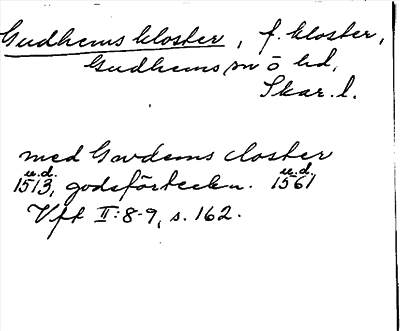 Gudhems kloster, f. kloster,
Gudhems sn o hd,
Skar. l.
med Govdems closter
u.d. u.d.
1513, godsförteckn. 1561
Vft II:8-9, s. 162.